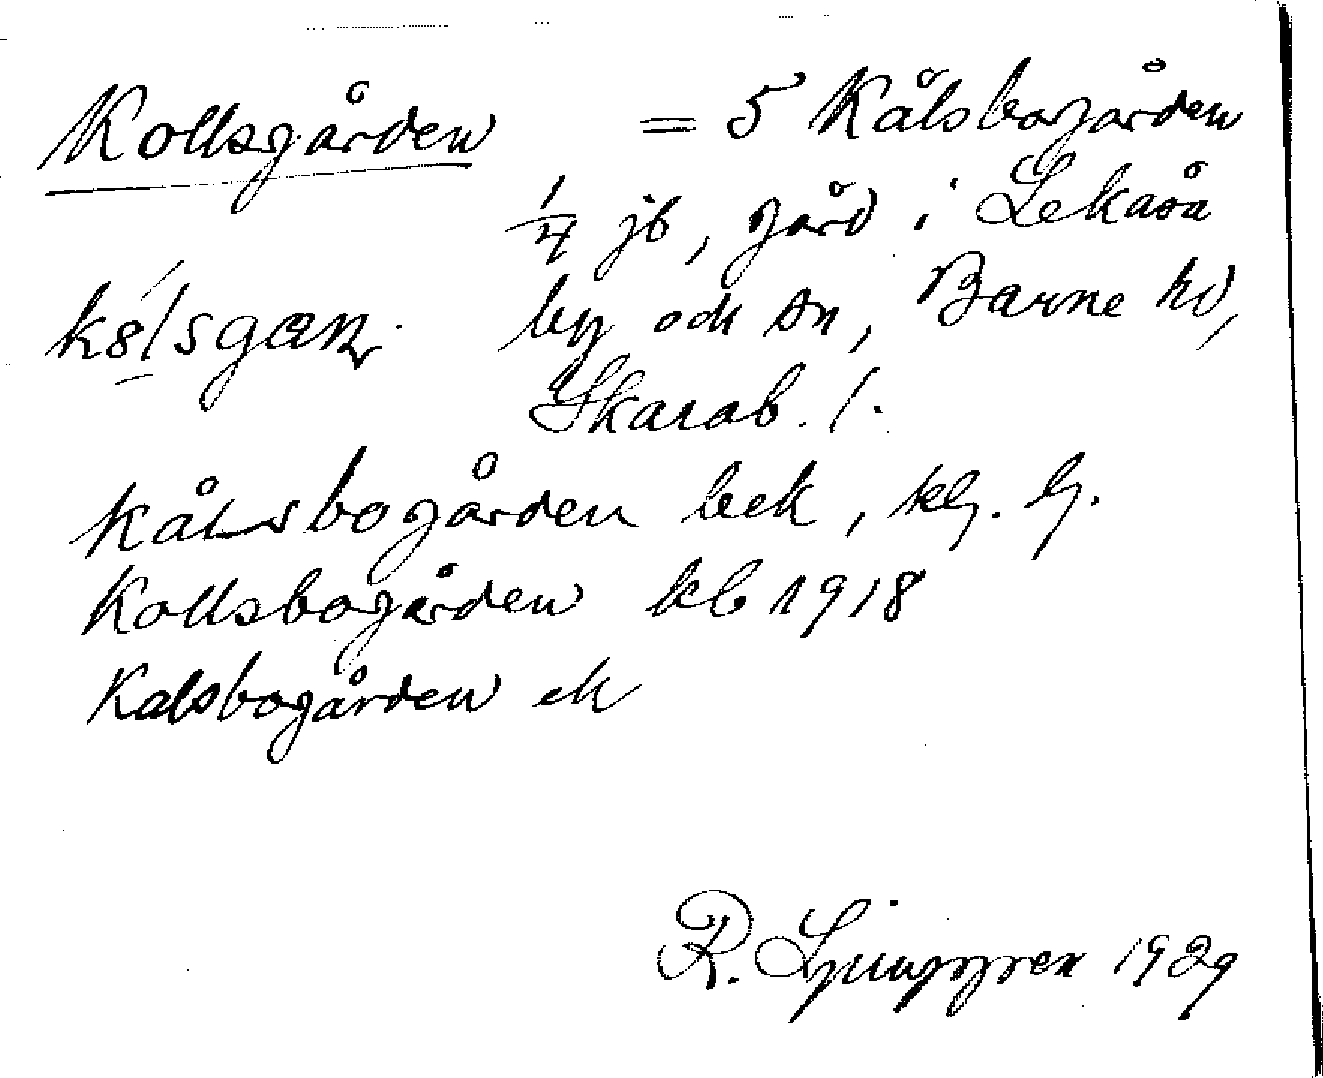 Kollsgården = 5 Kålsbogården
1/4 jb, gård i Lekåså
by och sn, Barne hd,
Skarab. l.
Kålsbogården bek, kg. b.
Kollsbogården kb 1918
Kalsbogården ek
R. Ljunggren 1929